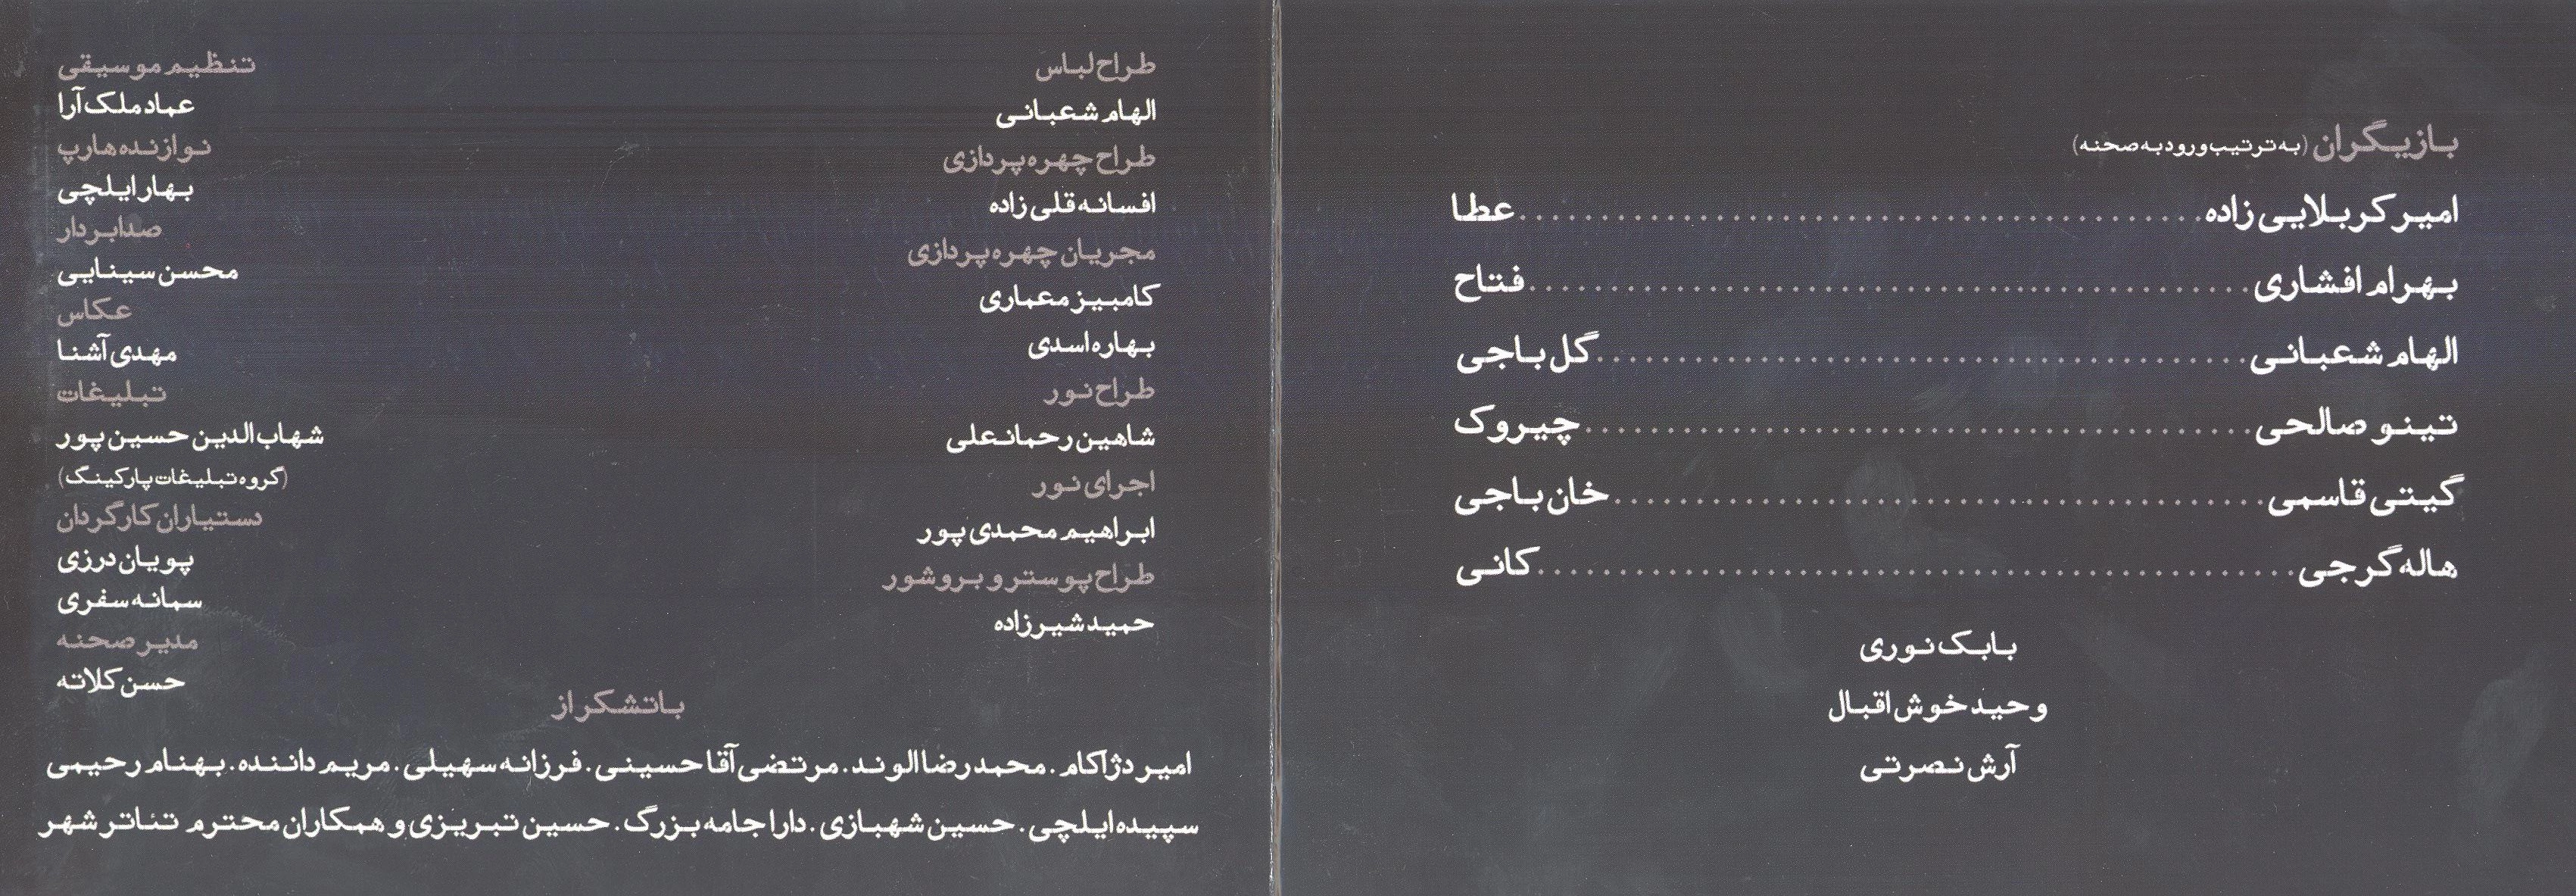 بازیگران (به ترتیب ورود به صحنه)
امیر کربلایی زاده........................................عطا
بهرام افشاری........................................فتاح
الهام شعبانی........................................گل باجی
تینو صالحی........................................چیروک
گیتی قاسمی........................................خان باجی
هاله گرجی........................................کانی
بابک نوری
وحید خوش اقبال
آرش نصرتی
طراح لباس
الهام شعبانی
طراح چهره پردازی
افسانه قلی زاده
مجریان چهره پردازی
کامبیز معماری
بهاره اسدی
طراح نور
شاهین رحمانعلی
اجرای نور
ابراهیم محمدی پور
طراح پوستر و بروشور
حمید شیرزاده
تنظیم موسیقی
عماد ملک آرا
نوازنده هارپ
بهار ایلچی
صدابردار
محسن سینایی
عکاس
مهدی آشنا
تبلیغات
شهاب الدین حسین پور
(گروه تبلیغات پارکینگ)
دستیاران کارگردان
پویان درزی
سمانه سفری
مدیر صحنه
حسن کلاته
با تشکر از
امیر دژاکام . محمدرضا الوند . مرتضی آقا حسینی . فرزانه سهیلی . مریم داننده . بهنام رحیمی
سپیده ایلچی . حسین شهبازی . دارا جامه بزرگ . حسین تبریزی و همکاران محترم تئاتر شهر